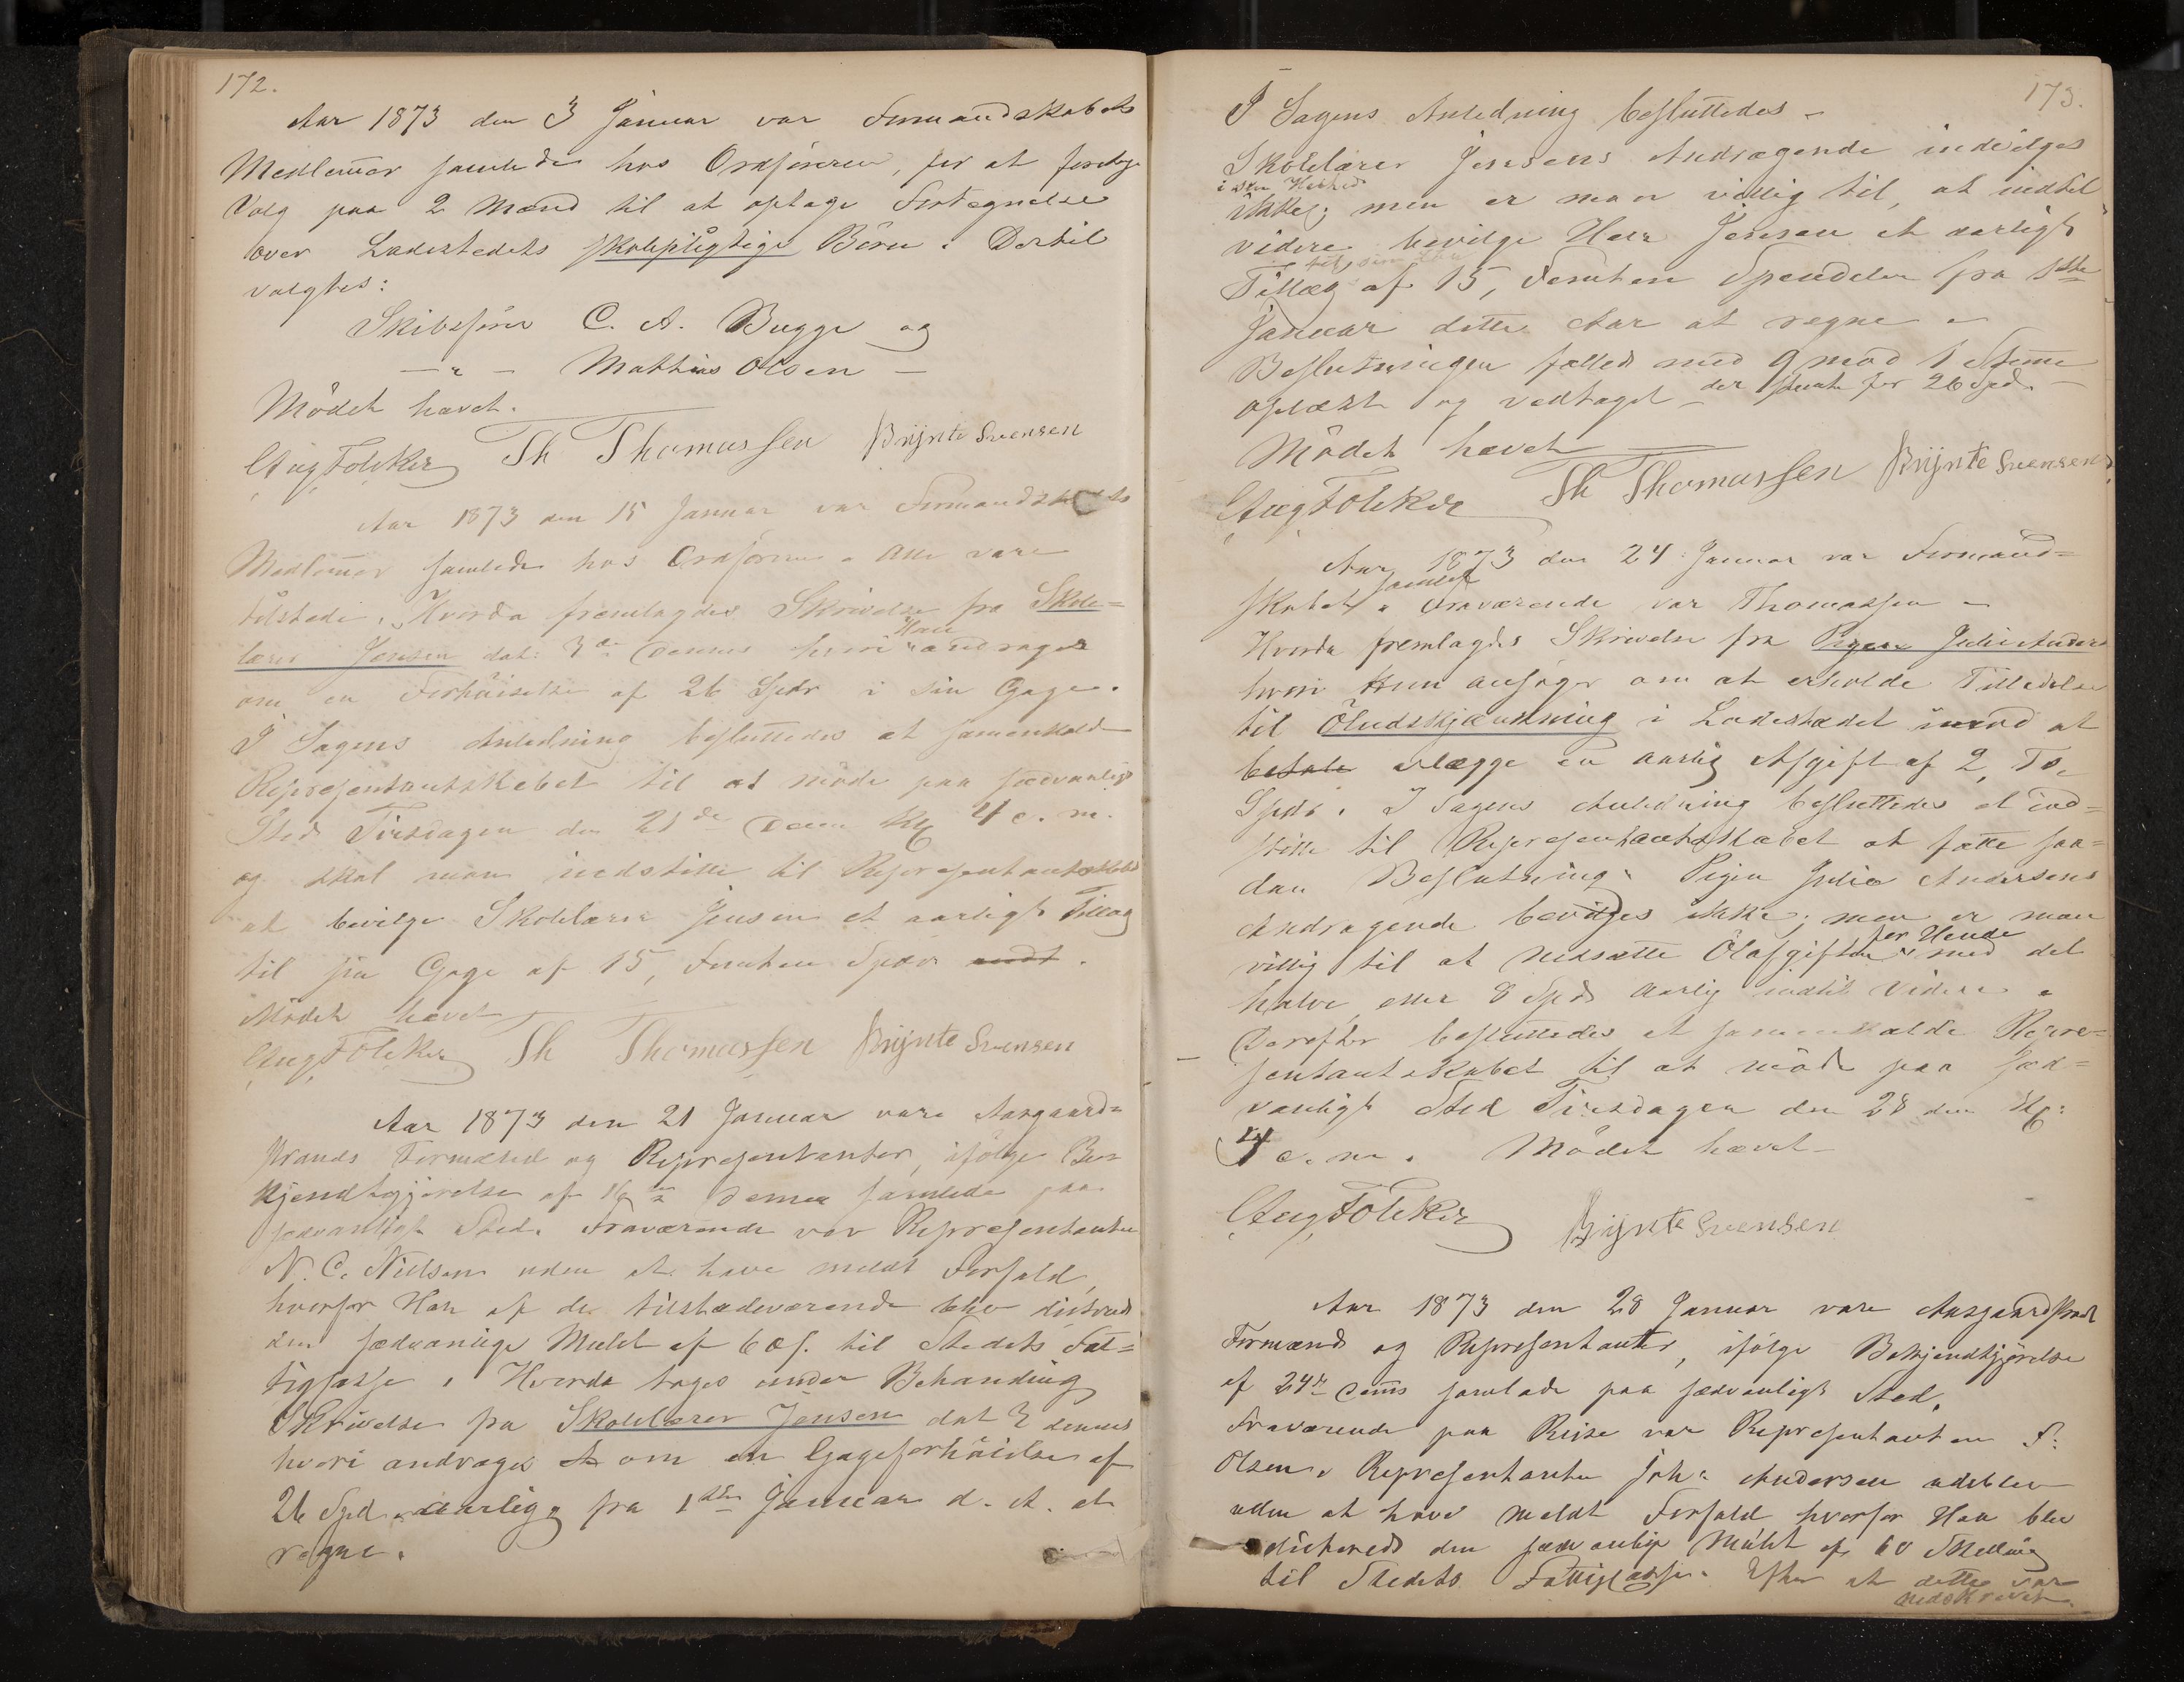 172.
Aar 1873 den 3 Januar var Formandskabets
Medlem̅er samlede hos Ordføreren, for at foretage
Valg paa 2 Mænd til at optage Fortegnelse
over Ladestedets skolepligtige Börn. Dertil
valgtes:
Skibsfører C. A. Bugge og
—"— Mathias Olsen —
Mödet hævet.
Aug Fölcker Th Thomassen Brynte Svensen
Aar 1873 den 15 Januar var Formandskabets
Medlem̅er samlede hos Ordføreren. Alle vare
tilstede. Hvorda fremlagdes Skrivelse fra Skole=
lærer Jensen dat: 3de Dennes hvori Han andrager
om en Forhöielse af 26 Spdr i sin Gage.
I Sagens Anledning besluttedes at sammenkalde
Representantskabet til at möde paa sædvanligt
Sted Tirsdagen den 21de Dennes Kl 4 e. m.
og skal man indstille til Representantskabet
at bevilge Skolelærer Jensen et aarligt Tillæg
til sin Gage af 15, Femten Spdr.
Mödet hævet
Aug Fölcker Th Thomassen Brynte Svensen
Aar 1873 den 21 Januar vare Aasgaard=
strands Formænd og Representanter, ifölge Be=
kjendtgjørelse af 16de Dennes samlede paa
sædvanligt Sted. Fraværende var Representanten
N. C. Nielsen uden at have meldt Forfald,
hvorfor Han af de tilstedeværende blev dicteret
den sædvanlige Mulct af 60 s. til Stedets Fat=
tigkasse. Hvorda toges under Behandling
Skrivelse fra Skolelærer Jensen dat 3 dennes
hvori andrages om en Gageforhöielse af
26 Spd. aarlig, fra 1ste Januar d. A. at
regne.
173.
I Sagens Anledning besluttedes —
Skolelærer Jensens Andragende indvilges
i sin Helhed
ikke; men er man villig til, at indtil
videre bevilge Herr Jensen et aarligt
Tillæg af 15, Femten Speciedaler fra 1ste
Januar dette Aar at regne —
Beslutningen fattedes med 9 mod 1 Stem̅e
oplæst og vedtaget — der stemte for 26 Spd. —
Mödet hævet
Aug Fölcker Th Thomassen Brynte Svensen
Aar 1873 den 24 Januar var Formand=
skabet samlet. Fraværende var Thomassen —
Hvorda fremlagdes Skrivelse fra Pigen Julie Anders
hvori Hun ansöger om at erholde Tilladelse
til Öludskjænkning i Ladestedet imod at
betale erlægge en aarlig Afgift af 2, To,
Spdr. I Sagens Anledning besluttedes at ind=
stille til Representantskabet at fatte saa=
dan Beslutning: Pigen Julie Andersens
Andragende bevilges ikke; men er man
villig til at nedsætte Ölafgiften for Hende med det
halve, eller 8 Spd aarlig indtil Videre.
Derefter besluttedes at sammenkalde Repre=
sentantskabet til at möde paa sæd=
vanligt Sted Tirsdagen den 28 den Kl:
4 e. m. Mödet hævet —
Aug Fölcker Brynte Svensen
Aar 1873 den 28 Januar vare Aasgaardstrands
Formænd og Representanter, ifölge Bekjendtgjörelse
af 24de Dennes samlede paa sædvanligt Sted.
Fraværende paa Reise var Representanten F.
Olsen. Representanten Joh: Andersen udeblev
uden at have meldt Forfald hvorfor Han blev
dicteret den sædvanlige Mulct af 60 Skilling
til Stedets Fattigkasse. Efter at dette var
nedskrevet